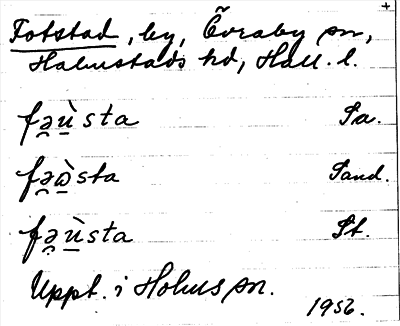 +
Fotstad, by, Övraby sn,
Halmstads hd, Hall. l.
fə̯ù̱sta Sa.
fə̯ɷ̱̀sta Sand.
fə̯ù̱sta St.
Uppt. i Holms sn.
1956.